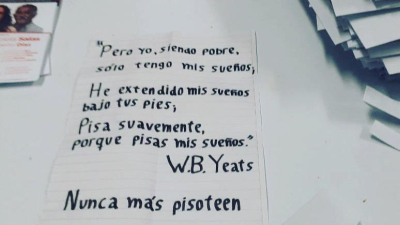 "Pero yo, siendo pobre,
sólo tengo mis sueños;
He extendido mis sueños
bajo tus pies;
Pisa suavemente,
porque pisas mis sueños."
W.B. Yeats
Nunca más pisoteen